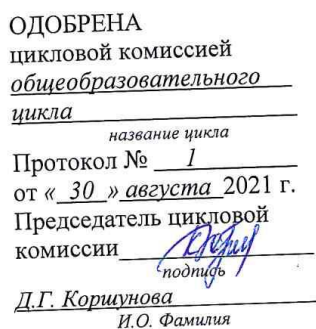 ОДОБРЕНА
цикловой комиссией
общеобразовательного
цикла
название цикла
Протокол № 1
от « 30 » августа 2021 г.
Председатель цикловой
комиссии
подпись
Д.Г. Коршунова
И.О. Фамилия